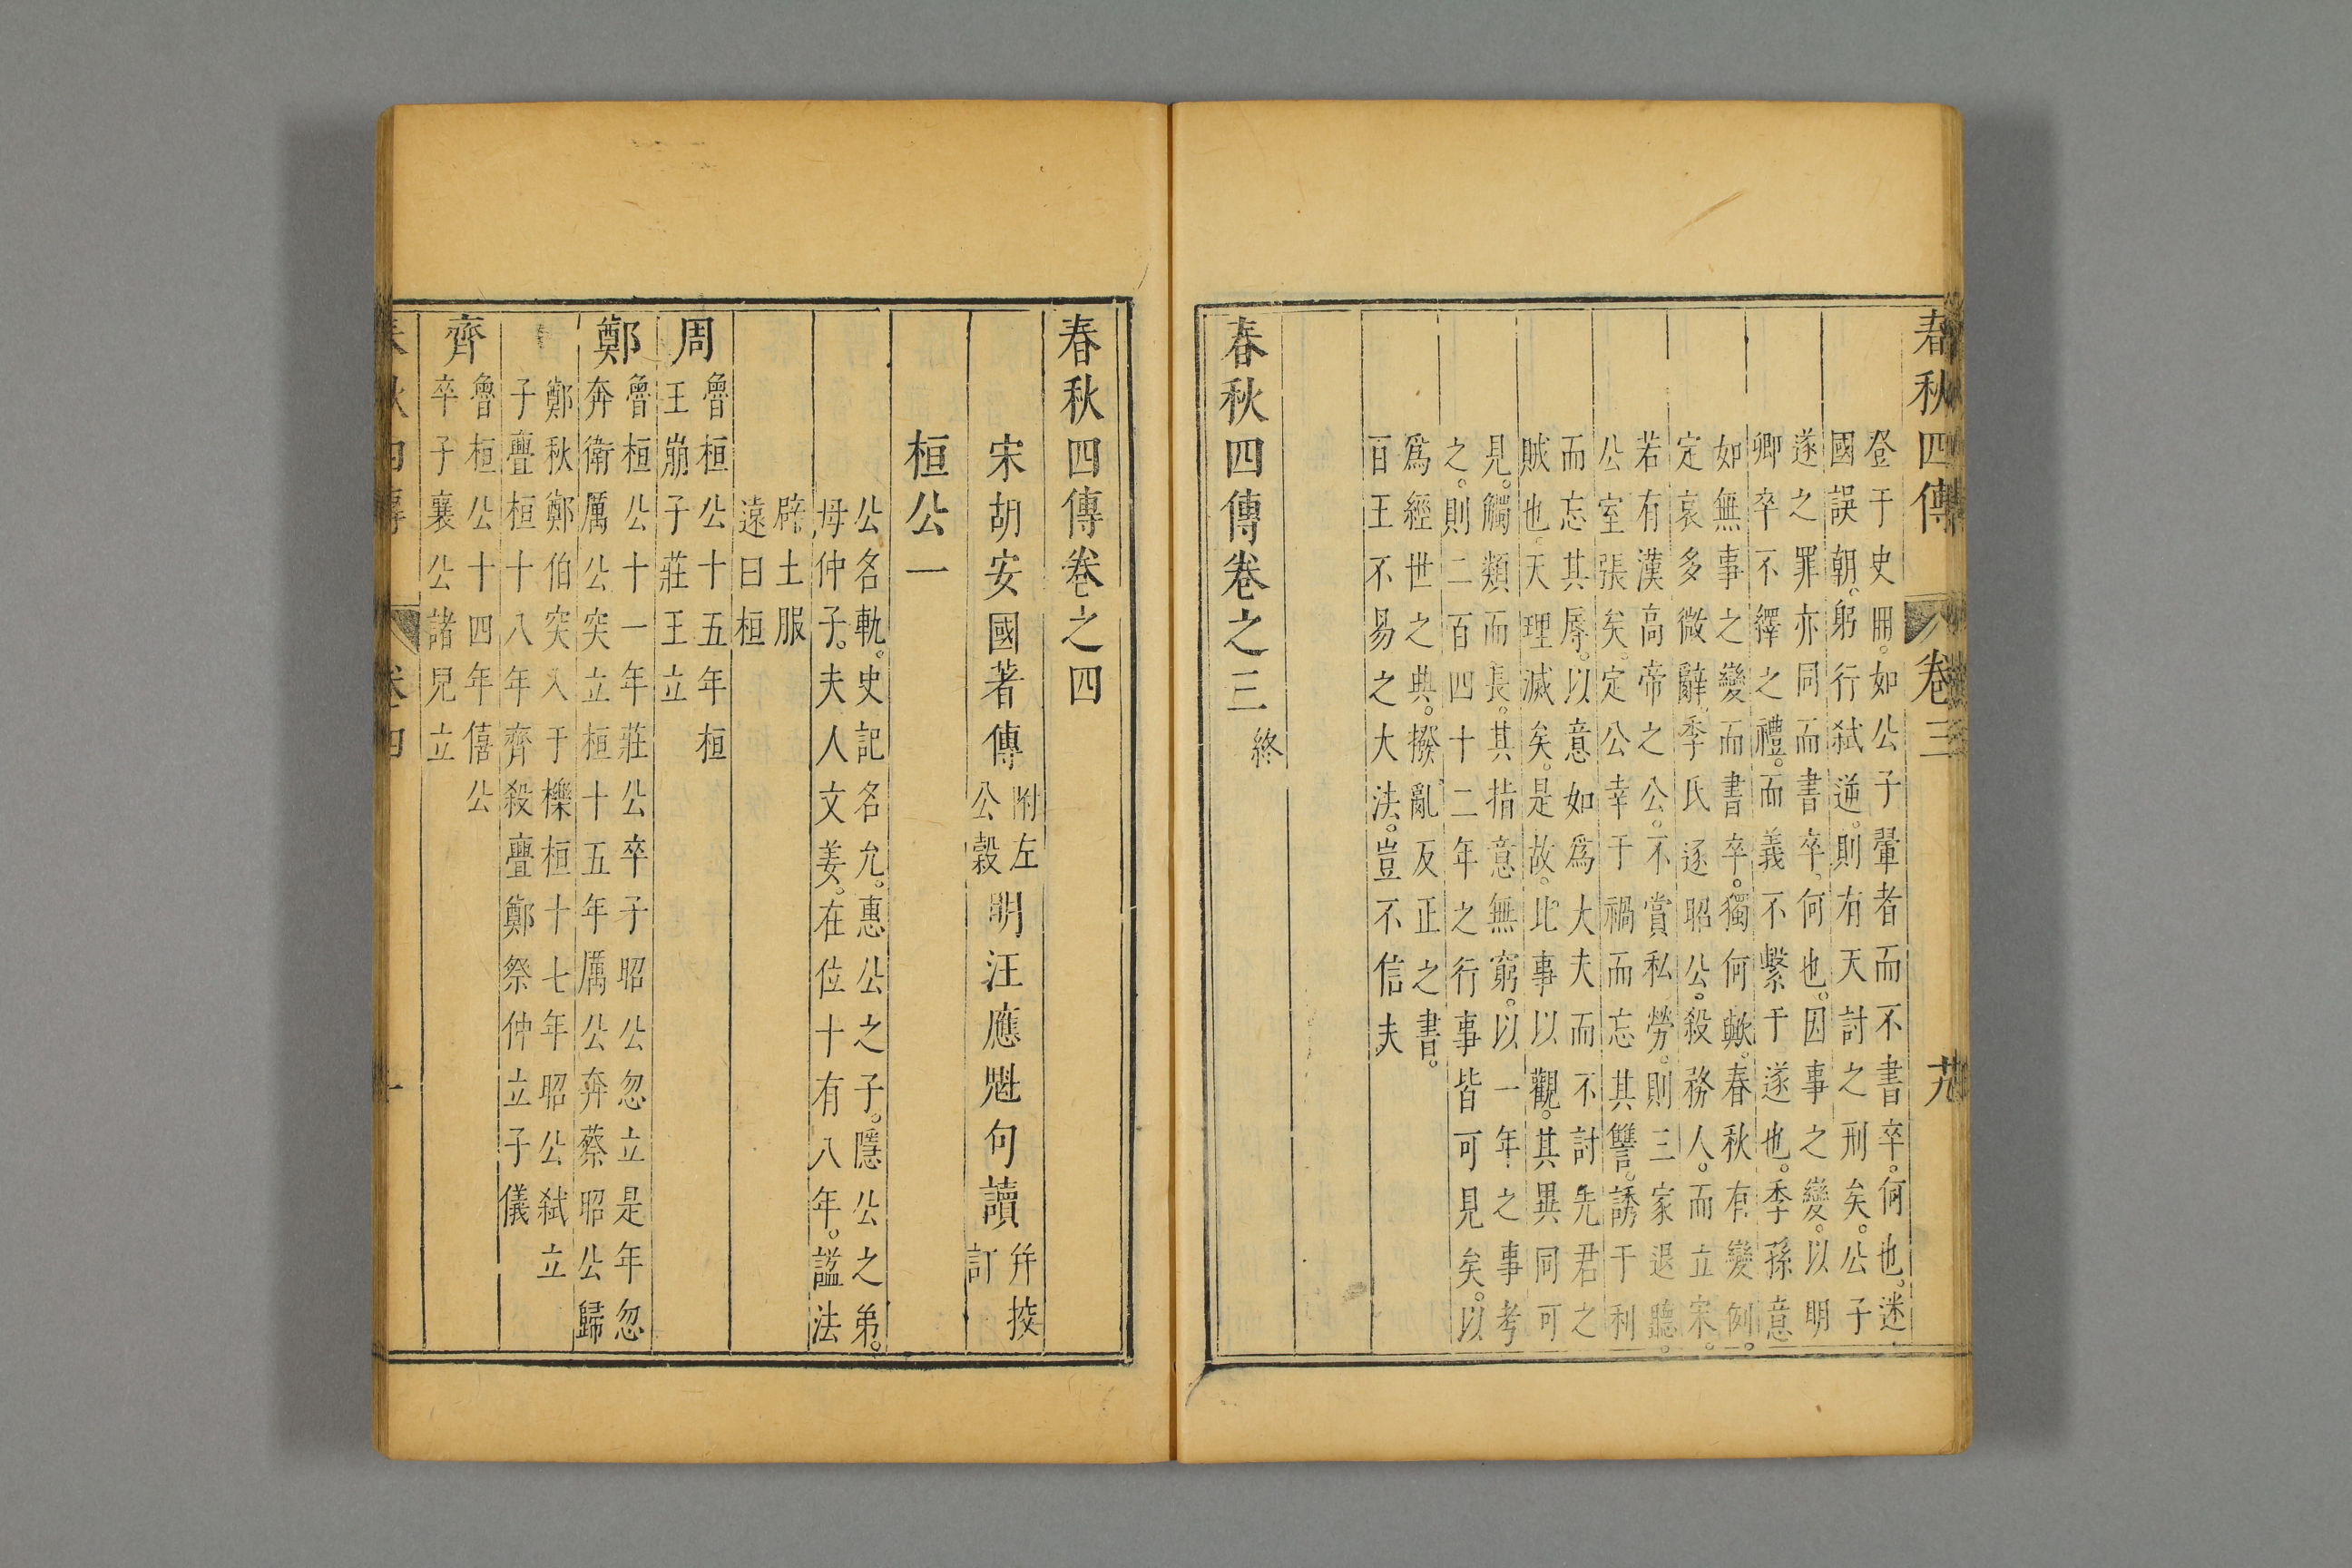 春秋四傳　卷三　九
登于史冊。如公子翬者而不書卒。何也。迷
國誤朝。躬行弑逆。則有天討之刑矣。公子
遂之罪亦同而書卒。何也。因事之變。以明
卿卒不繹之禮。而義不繫于遂也。季孫意
如無事之變而書卒。獨何歟。春秋有變例。
定哀多微辭。季氏逐昭公。殺務人。而立宋。
若有漢高帝之公。不賞私勞。則三家退聽。
公室張矣。定公幸于禍而忘其讐。誘于利
而忘其辱。以意如爲大夫而不討先君之
賊也。天理滅矣。是故。比事以觀。其異同可
見。觸類而長。其指意無窮。以一年之事考
之。則二百四十二年之行事皆可見矣。以
爲經世之典。撥亂反正之書。
百王不易之大法。豈不信夫
春秋四傳卷之三 終
春秋四傳卷之四
宋胡安國著傳 附左公穀 明汪應魁句讀 并挍訂
桓公一
公名軌。史記名允。惠公之子。隱公之弟。
母仲子。夫人文姜。在位十有八年。諡法
辟土服
遠曰桓
周 魯桓公十五年桓
王崩子莊王立
鄭 魯桓公十一年莊公卒子昭公忽立是年忽
奔衛厲公突立桓十五年厲公奔蔡昭公歸
鄭秋鄭伯突入于櫟桓十七年昭公弑立
子亹桓十八年齊殺亹鄭祭仲立子儀
齊 魯桓公十四年僖公
卒子襄公諸兒立